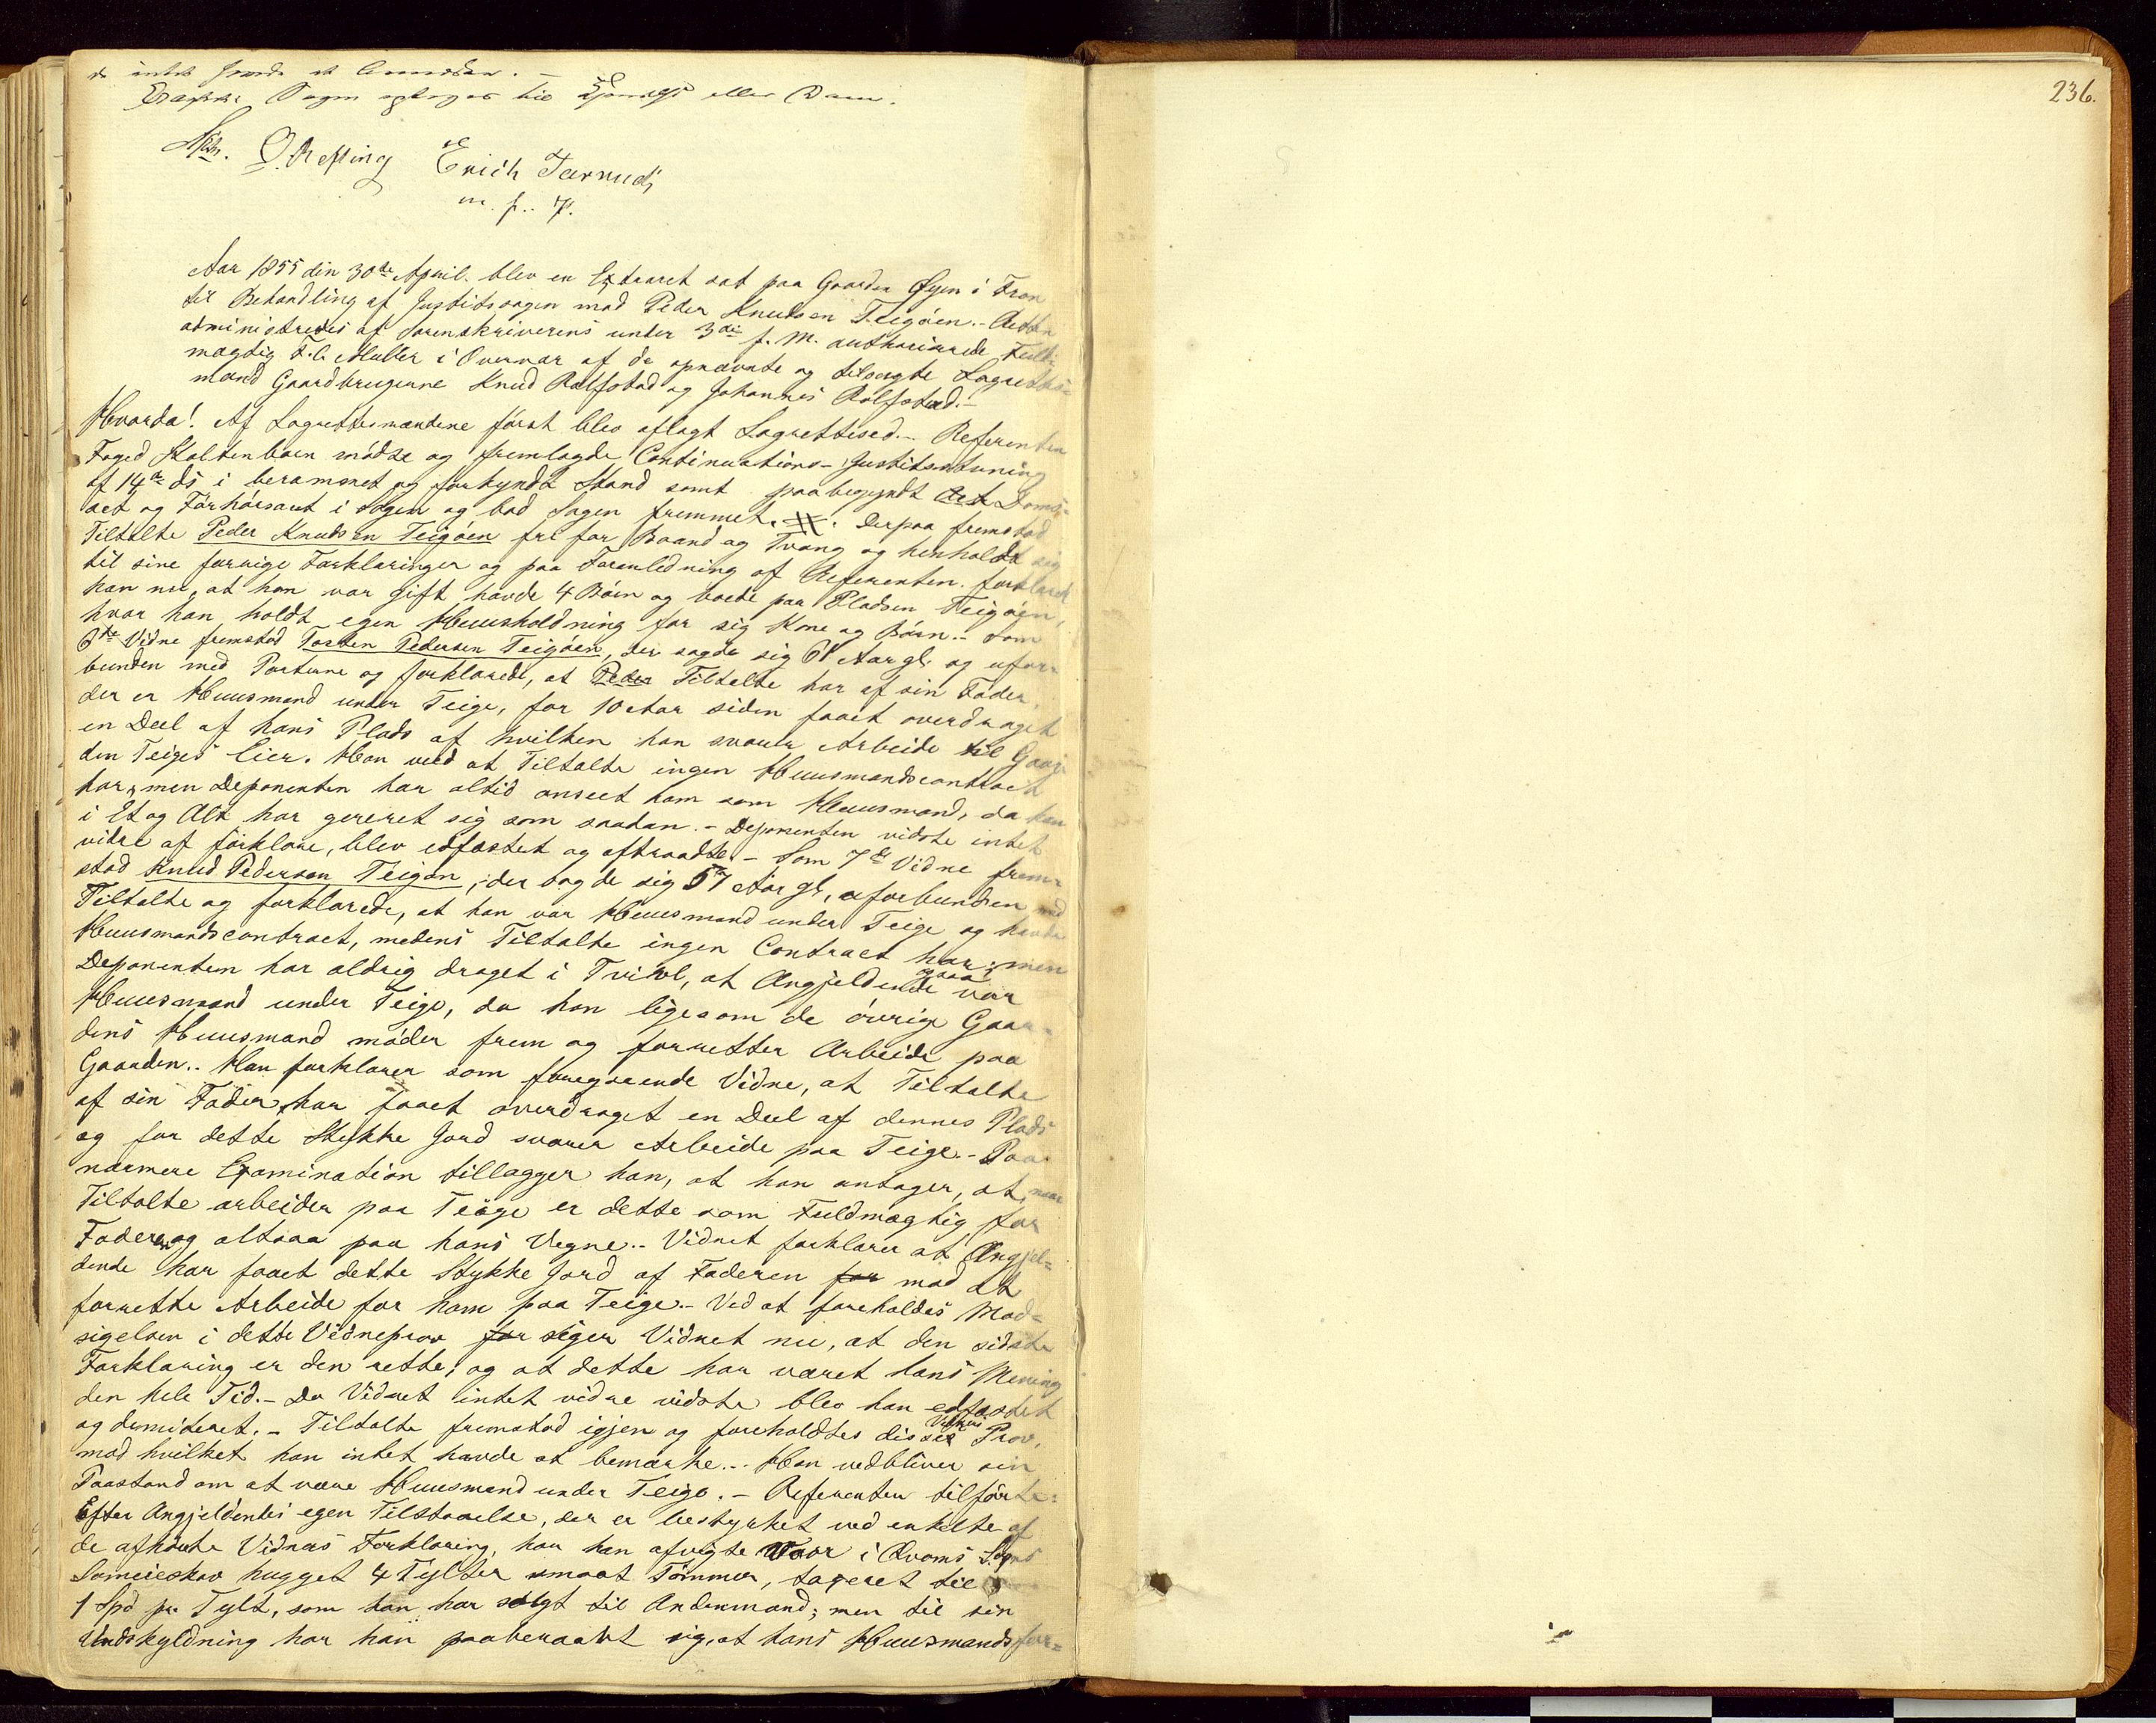 intet havde at bemærke. –
Sagen optages til Kjendelse eller Dom.
O. Refling Erich Tarnud
m. f. P.
236.
Aar 1855 den 30de April blev en Extraret sat paa Gaarden Øyen i Fron
til Behandling af Justitssagen mod Peder Knudsen Teigöen. – Retten
administredes af Sorenskriverens under 3die f. M. authoriserede Fuld-
mægtig F. C. Müller i Overvær af de opnævnte og tilsagte Lagrettes-
mænd Gaardbrugerne Knud Rolfstad og Johannes Rolfstad. –
Hvorda! Af Lagrettesmændene först blev aflagt Lagrettesed. – Referenten
Foged Stoltenborn mödte og fremlagde Continuations-Justitsstevning
af 14de ds i berammet og forkyndt Stand samt paabegyndt Doms-
act og Forhörsact i Sagen og bad Sagen fremmet. Derpaa fremstod
Tiltalte Peder Knudsen Teigöen fri for Baand og Tvang og henholdt sig
til sine forrige Forklaringer og paa Foranledning af Referenten forklarede
han nu, at han var gift havde 4 Börn og boede paa Pladsen Teigöen,
hvor han holdt egen Huusholdning for sig Kone og Börn. – Som
6te Vidne fremstod Torsten Pedersen Teigöen, der sagde sig 61 Aar gl. og ufor-
bunden med Parterne og forklarede, at Peder Tiltalte har af sin Fader,
der er Huusmand under Teige, for 10 Aar siden faaet overdraget
en Deel af hans Plads af hvilken han svarer Arbeide til Gaar-
den Teiges Eier. Han veed at Tiltalte ingen Huusmandscontract
har, men Deponenten har altid anseet ham som Huusmand, da han
i Et og Alt har gereret sig som saadan. – Deponenten vidste intet
videre at forklare, blev edfæstet og aftraadte. – Som 7de Vidne frem-
stod Knud Pedersen Teigön, der sagde sig 57 Aar gl, uforbunden med
Tiltalte og forklarede, at han var Huusmand under Teige og havde
Huusmandscontract, medens Tiltalte ingen Contract har; men
Deponenten har aldrig draget i Tvivl, at Angjeldende ogsaa var
Huusmand under Teige, da han ligesom de övrige Gaar-
dens Huusmænd möder frem og forretter Arbeide paa
Gaarden. Han forklarer som foregaaende Vidne, at Tiltalte
af sin Fader har faaet overdraget en Deel af dennes Plads
og for dette Stykke Jord svarer Arbeide paa Teige. – Paa
nærmere Examination tillægger han, at han antager, at naar
Tiltalte arbeider paa Teige er dette som Fuldmægtig for
Faderen og altsaa paa hans Vegne. – Vidnet forklarer at Angjel-
dende har faaet dette Stykke Jord af Faderen for mod at
forrette Arbeide for ham paa Teige. – Ved at foreholdes Mod-
sigelsen i dette Vidneprov for siger Vidnet nu, at den sidste
Forklaring er den rette, og at dette har været hans Mening
den hele Tid. – Da Vidnet intet videre vidste blev han edfæstet
og demitteret. – Tiltalte fremstod igjen og foreholdtes disse Vidners Prov,
mod hvilket han intet havde at bemærke. – Han vedbliver sin
Paastand om at være Huusmand under Teige. – Referenten tilförte:
Efter Angjeldendes egen Tilstaaelse, der er bestyrket ved enkelte af
de afhörte Vidners Forklaring, har han afvigte Vaar i Qvams Sogns
Sameieskov hugget 4 Tylter smaat Tömmer, taxeret til
1 Spd pr. Tylt, som han har solgt til Andenmand; men til sin
Undskyldning har han paaberaabt sig, at hans Huusmandsfor-